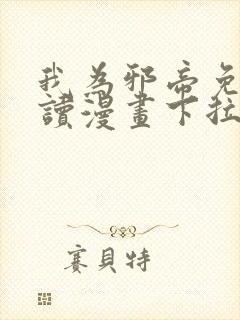 我為邪帝免
讀漫畫下拉
賽貝特